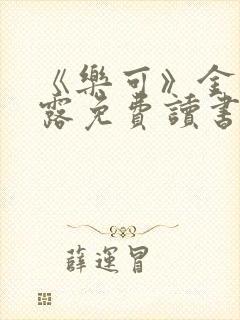 《樂可》金
露免費讀書
薛運冒